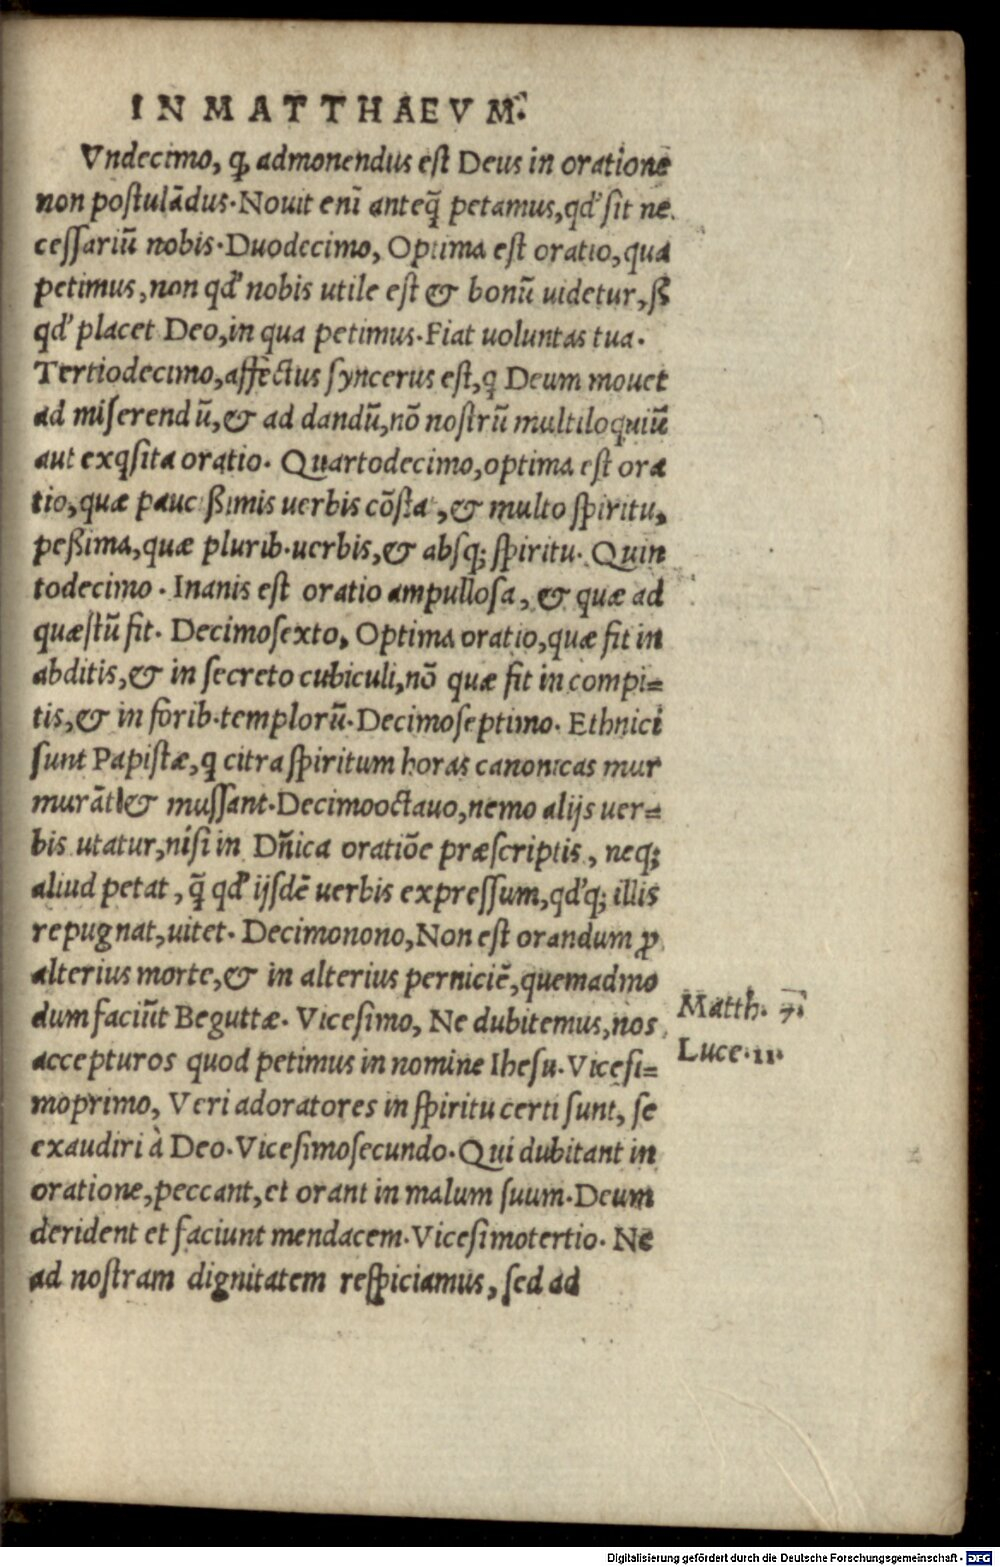 IN MATTHAEVM.
Vndecimo, q̃ admonendus est Deus in oratione
non postulādus. Nouit enĩ anteq̃ petamus, qd' sit ne
cessariũ nobis. Duodecimo, Optima est oratio, qua
petimus, non qd' nobis utile est & bonũ uidetur, ß
qd' placet Deo, in qua petimus. Fiat uoluntas tua.
Tertiodecimo, affectus syncerus est, q Deum mouet
ad miserendũ, & ad dandũ, nõ nostrũ multiloquiũ
aut exqsita oratio. Quartodecimo, optima est ora
tio, quæ paucißimis uerbis cõstat, & multo spiritu,
peßima, quæ plurib. uerbis, & absq; spiritu. Quin
todecimo. Inanis est oratio ampullosa, & quæ ad
quæstũ fit. Decimosexto, Optima oratio, quæ fit in
abditis, & in secreto cubiculi, nõ quæ fit in compi=
tis, & in forib. templorũ. Decimoseptimo. Ethnici
sunt Papistæ, q citra spiritum horas canonicas mur
murãt & mussant. Decimooctauo, nemo alijs uer=
bis utatur, nisi in Dñica oratiõe præscriptis, neq;
aliud petat, q̃ qd' ijsdẽ uerbis expressum, qd'q; illis
repugnat, uitet. Decimonono, Non est orandum ꝓ
alterius morte, & in alterius perniciẽ, quemadmo
dum faciũt Beguttæ. Vicesimo, Ne dubitemus, nos
accepturos quod petimus in nomine Ihesu. Vicesi=
moprimo, Veri adoratores in spiritu certi sunt, se
exaudiri à Deo. Vicesimosecundo. Qui dubitant in
oratione, peccant, et orant in malum suum. Deum
derident et faciunt mendacem. Vicesimotertio. Ne
ad nostram dignitatem respiciamus, sed ad
Matth. 7.
Luce. 11.
Digitalisierung gefördert durch die Deutsche Forschungsgemeinschaft - DFG